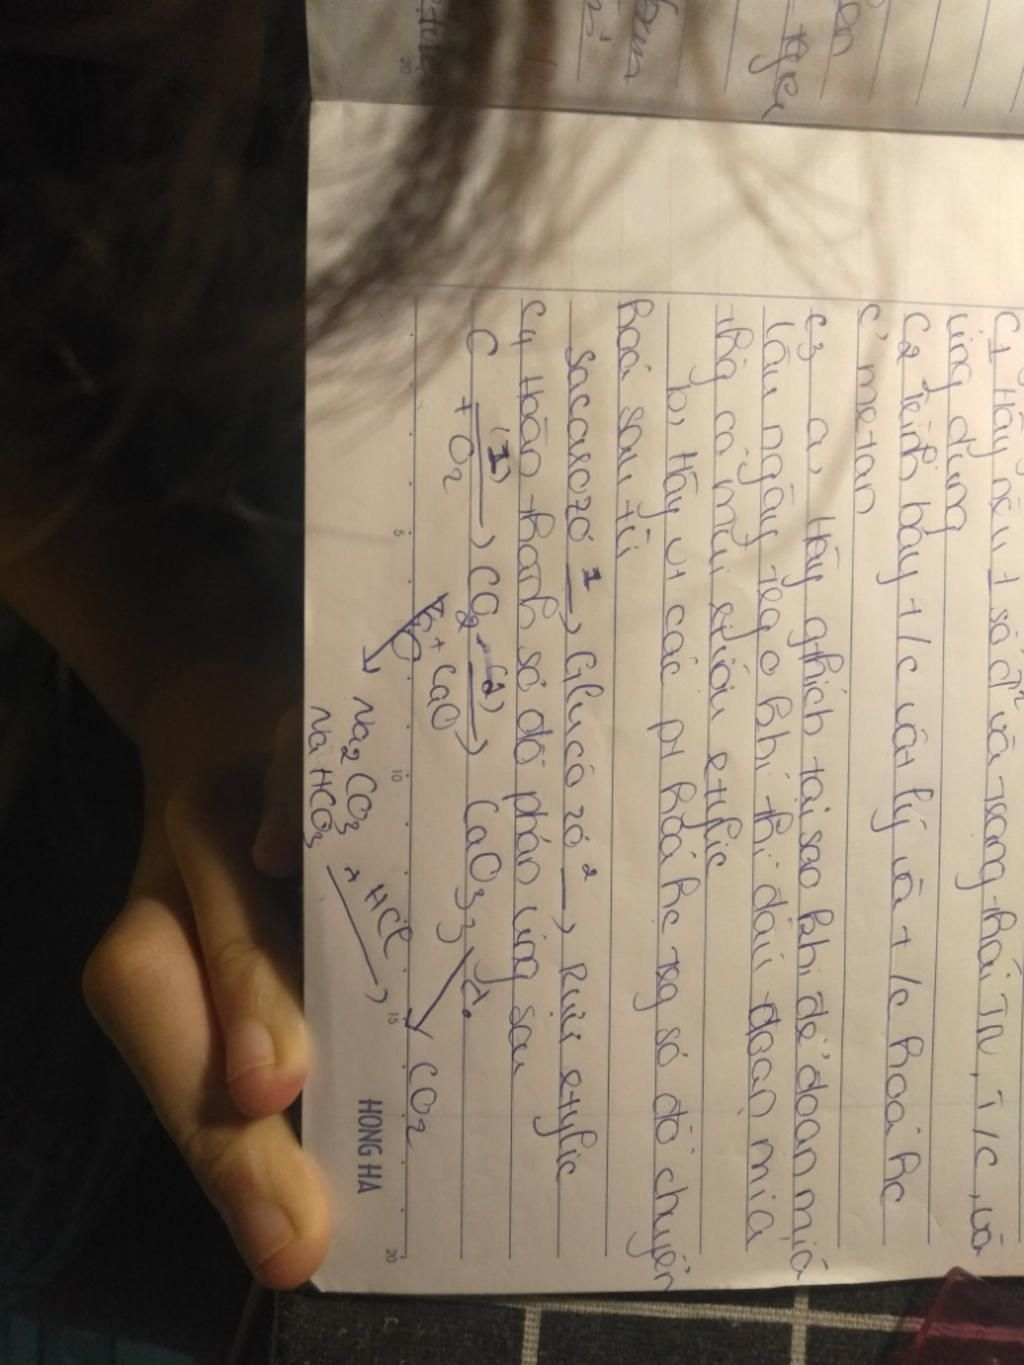 C1 Hãy nêu 1 số đ² và trạng thái TN, T/c, và
ứng dụng
C2 Trình bày t/c vật lý và t/c hoá hc
c' metan
C3 a, Hãy gthích tại sao khi để đoạn mía
lâu ngày trg o khí thì đầu đoạn mía
thg có mùi rượu etylic
b, Hãy vt các pt hoá hc trg sơ đồ chuyển
hoá sau từ
Saccarozơ 1→ Glucozơ 2→ Rượu etylic
C4 Hoàn thành sơ đồ phản ứng sau
C (1)→ CO2 (2)→ CaCO3 CO2
+O2 + CaO
Na2CO3 + HCl →
NaHCO3
5 10 15 20
HONG HA